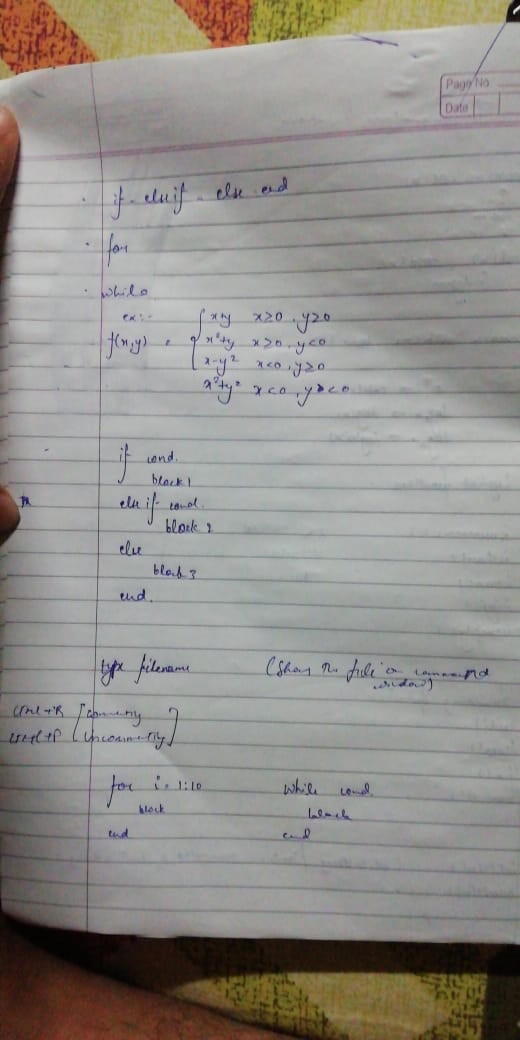 Page No
Date
· if - else if - else end
· for
· while
ex:-
f(x,y) = { x+y x≥0, y≥0
x²+y x≥0, y<0
x-y² x<0, y≥0
x²+y² x<0, y<0
if cond.
block 1
else if cond.
block 2
else
block 3
end.
type filename (Shows the file on command
window)
ctrl+R [commenting
ctrl+T uncommenting]
for i = 1:10 while cond
block block
end end